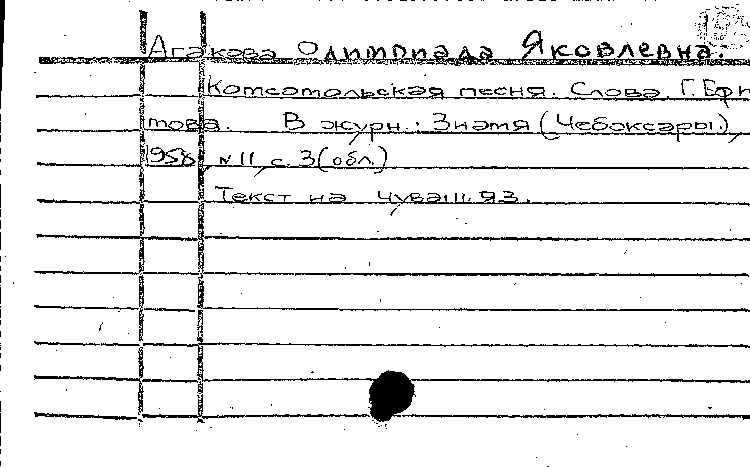 Агакова Олимпиада Яковлевна.
Комсомольская песня. Слова Г. Ефи
мова. В журн.: Знамя (Чебоксары),
1958, №11, с. 3 (обл.)
Текст на чуваш. яз.